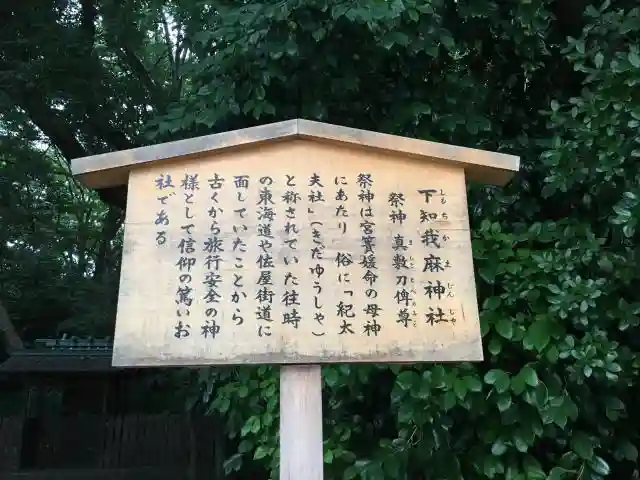 下知我麻神社
しもちかまじんじゃ
祭神 真敷刀俾尊
ましきとべのみこと
祭神は宮簀媛命の母神
にあたり 俗に「紀太
夫社」(きだゆうしゃ)
と称されていた往時
の東海道や佐屋街道に
面していたことから
古くから旅行安全の神
様として信仰の篤いお
社である